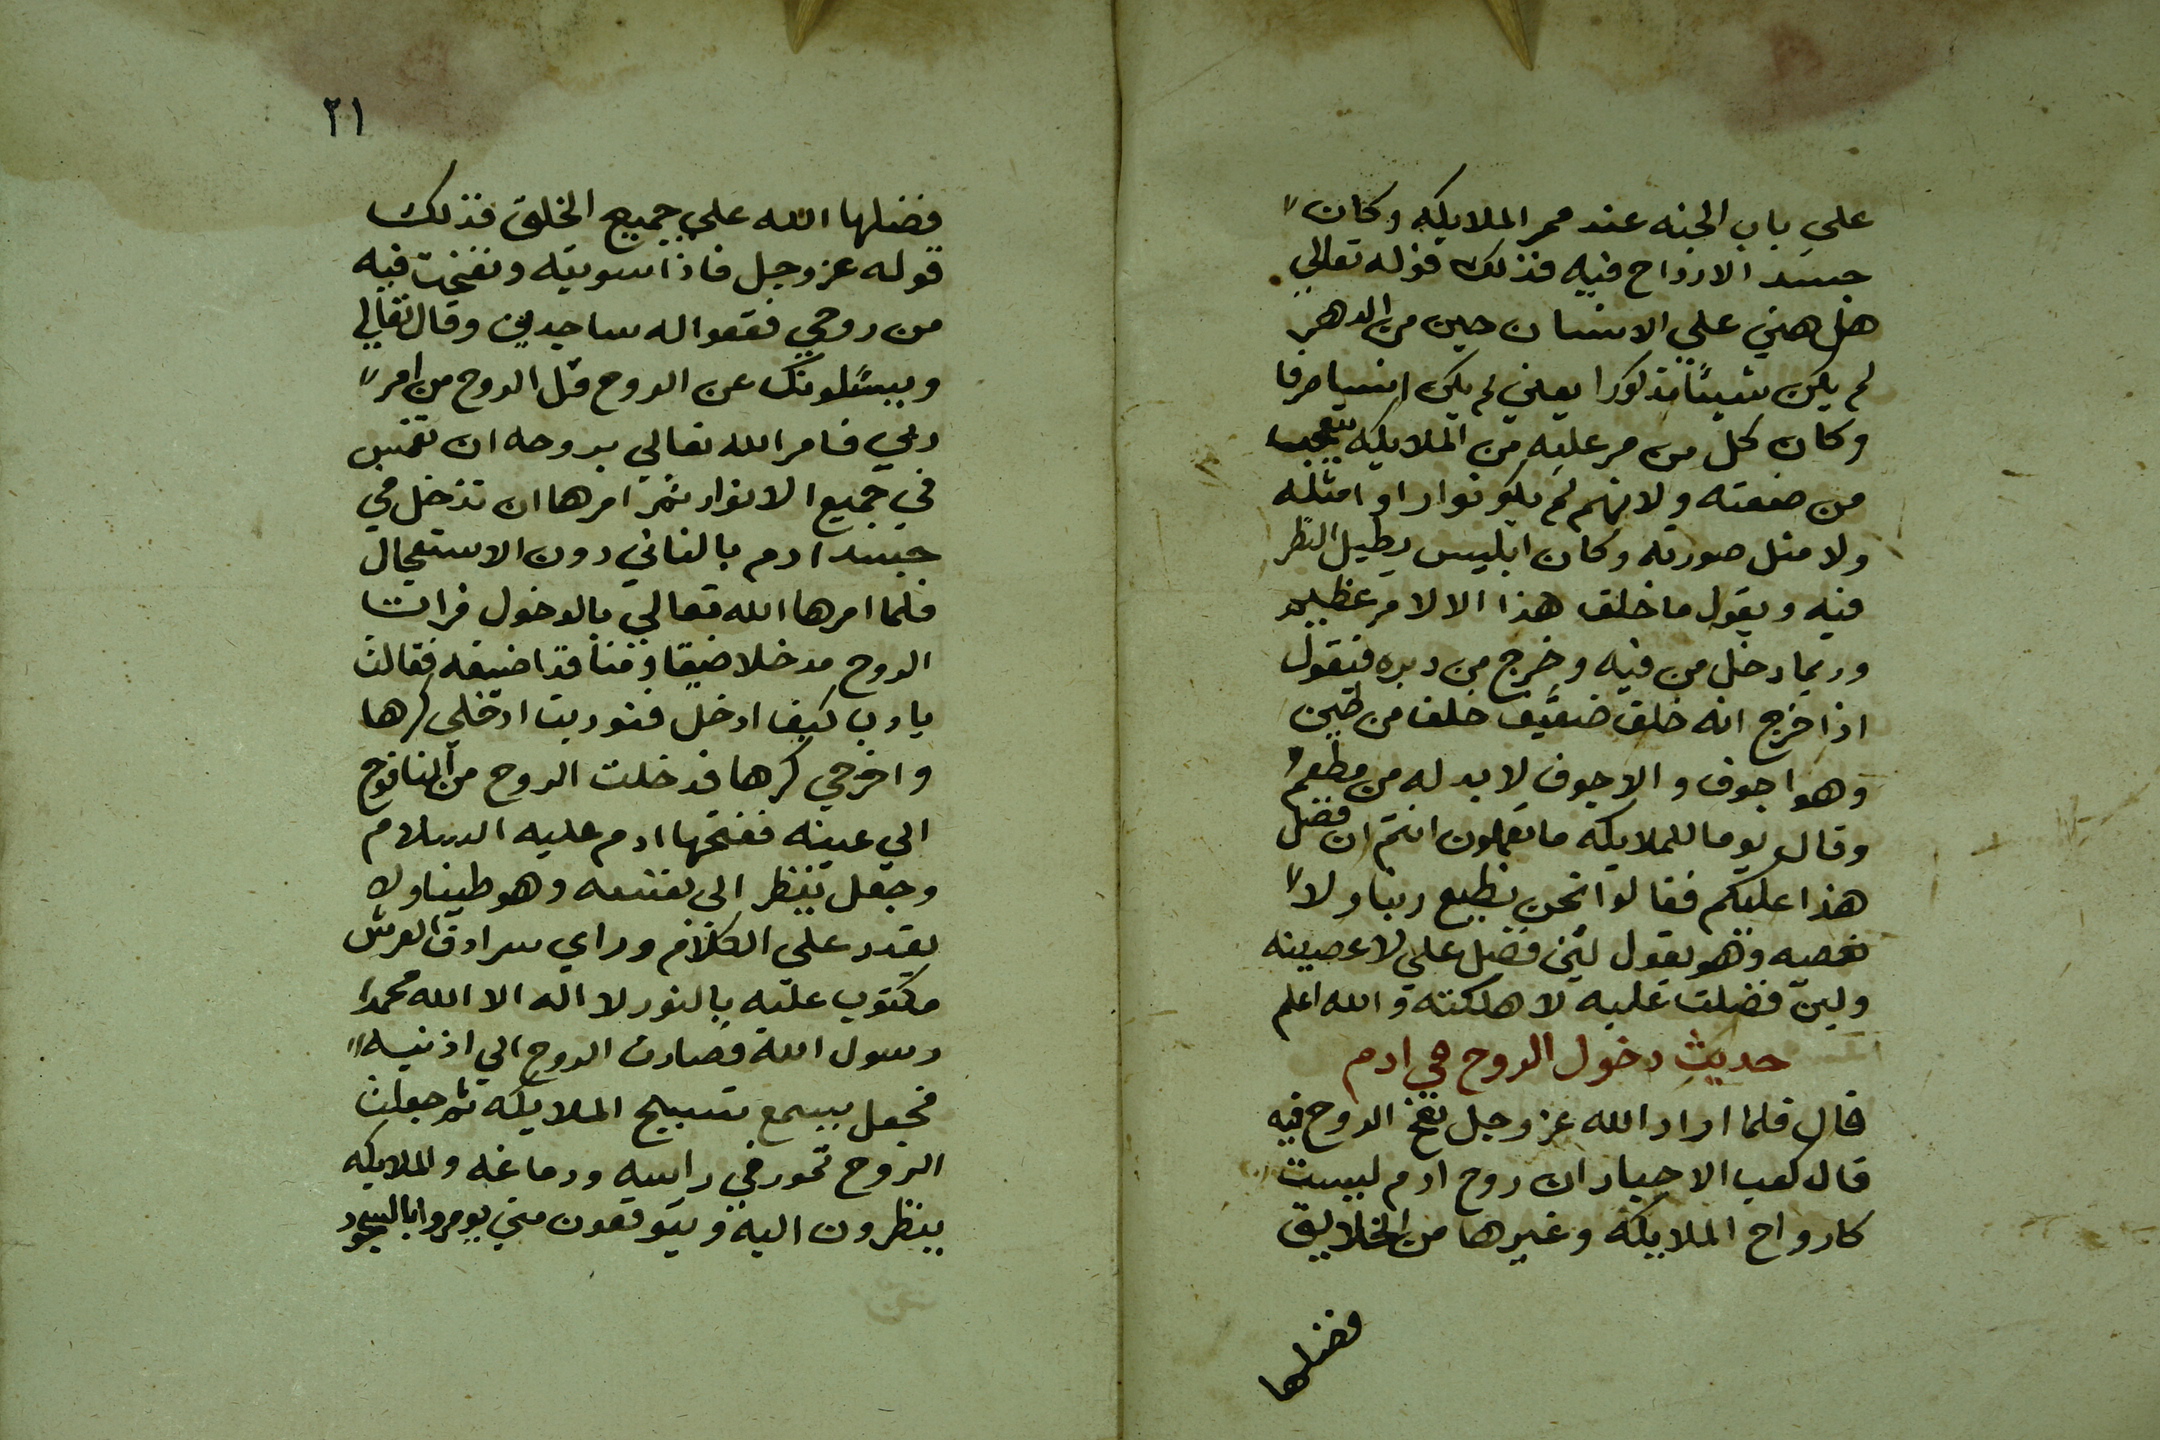 علي باب الجنه عند ممر الملايكه وكان
جسد الارواح فيه فذلك قوله تعالي
هل هتي علي الانسان حين من الدهر
لم يكن شيئا مذكورا يعني لم يكن
وكان كل من مر عليه من الملايكه يتعجب
من صنعته ولانهم لم يكونوا راو امثله
ولا مثل صورته وكان ابليس يطيل النظر
فيه ويقول ما خلق هذا الا لامر عظيم
وربما دخل من فيه وخرج من دبره فيقول
اذا خرج انه خلق ضعيف خلق من طين
وهو اجوف والاجوف لا بد له من مطعم
وقال يوما للملايكه ما تعملون انتم ان فضل
هذا عليكم فقالوا نحن نطيع ربنا ولا
نعصيه وهو يقول لين فضل علي لاعصينه
ولين فضلت عليه لاهلكنه والله اعلم
حديث دخول الروح في ادم
قال فلما اراد الله عز وجل نفخ الروح فيه
قال كعب الاحبار ان روح ادم ليست
كارواح الملايكه وغيرها من الخلايق
فضلها
٢١
فضلها الله علي جميع الخلق فذلك
قوله عز وجل فاذا سويته ونفخت فيه
من روحي فقعوا له ساجدين وقال تعالي
ويسئلونك عن الروح قل الروح من امر
ربي فامر الله تعالي بروحه ان تغمس
في جميع الانوار ثم امرها ان تدخل في
جسد ادم بالتاني دون الاستعجال
فلما امرها الله تعالي بالدخول فرات
الروح مدخلا ضيقا ومنافذا ضيقه فقالت
يا رب كيف ادخل فنوديت ادخلي كرها
واخرجي كرها فدخلت الروح من اليافوج
الي عينه ففتحها ادم عليه السلام
وجعل ينظر الي نفسه وهو طينا ولا
يقدر علي الكلام وراي سرادق العرش
مكتوب عليه بالنور لا اله الا الله محمدا
رسول الله فصارت الروح الي اذنيه
فجعل يسمع تسبيح الملايكه ثم جعلت
الروح تمور في راسه ودماغه والملايكه
ينظرون اليه ويتوقعون متي يومروا بالسجود